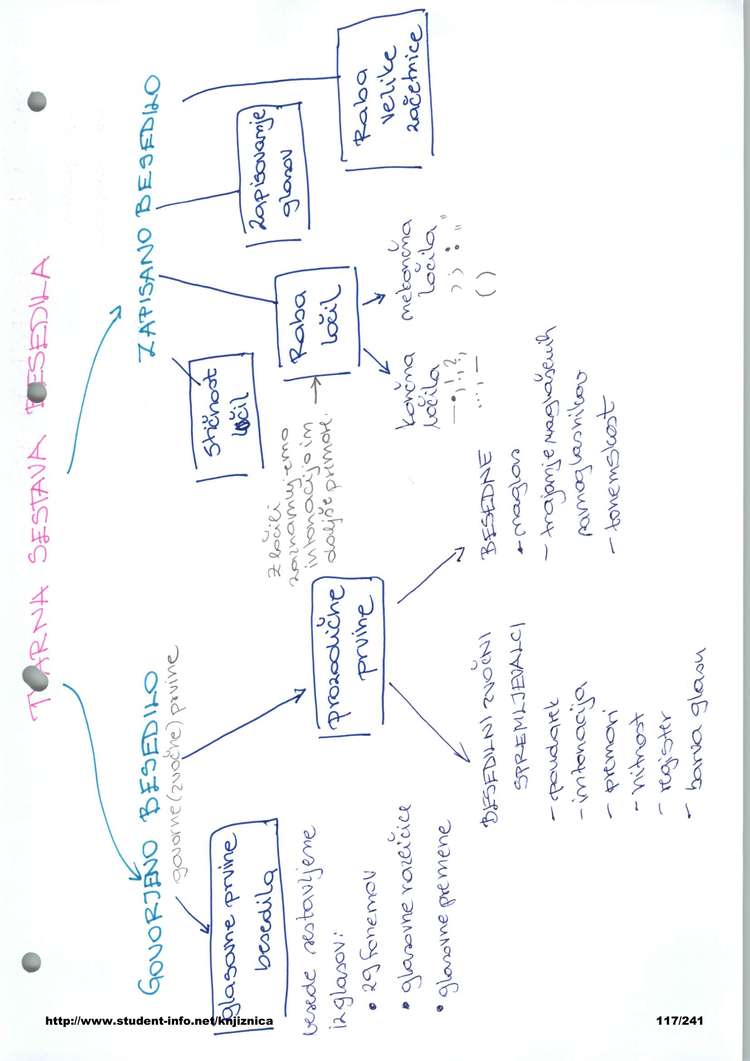 TVARNA SESTAVA BESEDILA
GOVORJENO BESEDILO
govorne (zvočne) prvine
glasovne prvine
besedila
besede sestavljene
iz glasov:
• 29 fonemov
• glasovne različice
• glasovne premene
prozodične
prvine
BESEDILNI ZVOČNI
SPREMLJEVALCI
- poudarek
- intonacija
- premori
- hitrost
- register
- barva glasu
BESEDNE
- naglas
- trajanje naglašenih
samoglasnikov
- tonemskost
ZAPISANO BESEDILO
Stičnost
ločil
Z ločili
zaznamujemo
intonacijo in
daljše premore.
Raba
ločil
končna
ločila
nekončna
ločila
( )
Zapisovanje
glasov
Raba
velike
začetnice
http://www.student-info.net/knjiznica
117/241